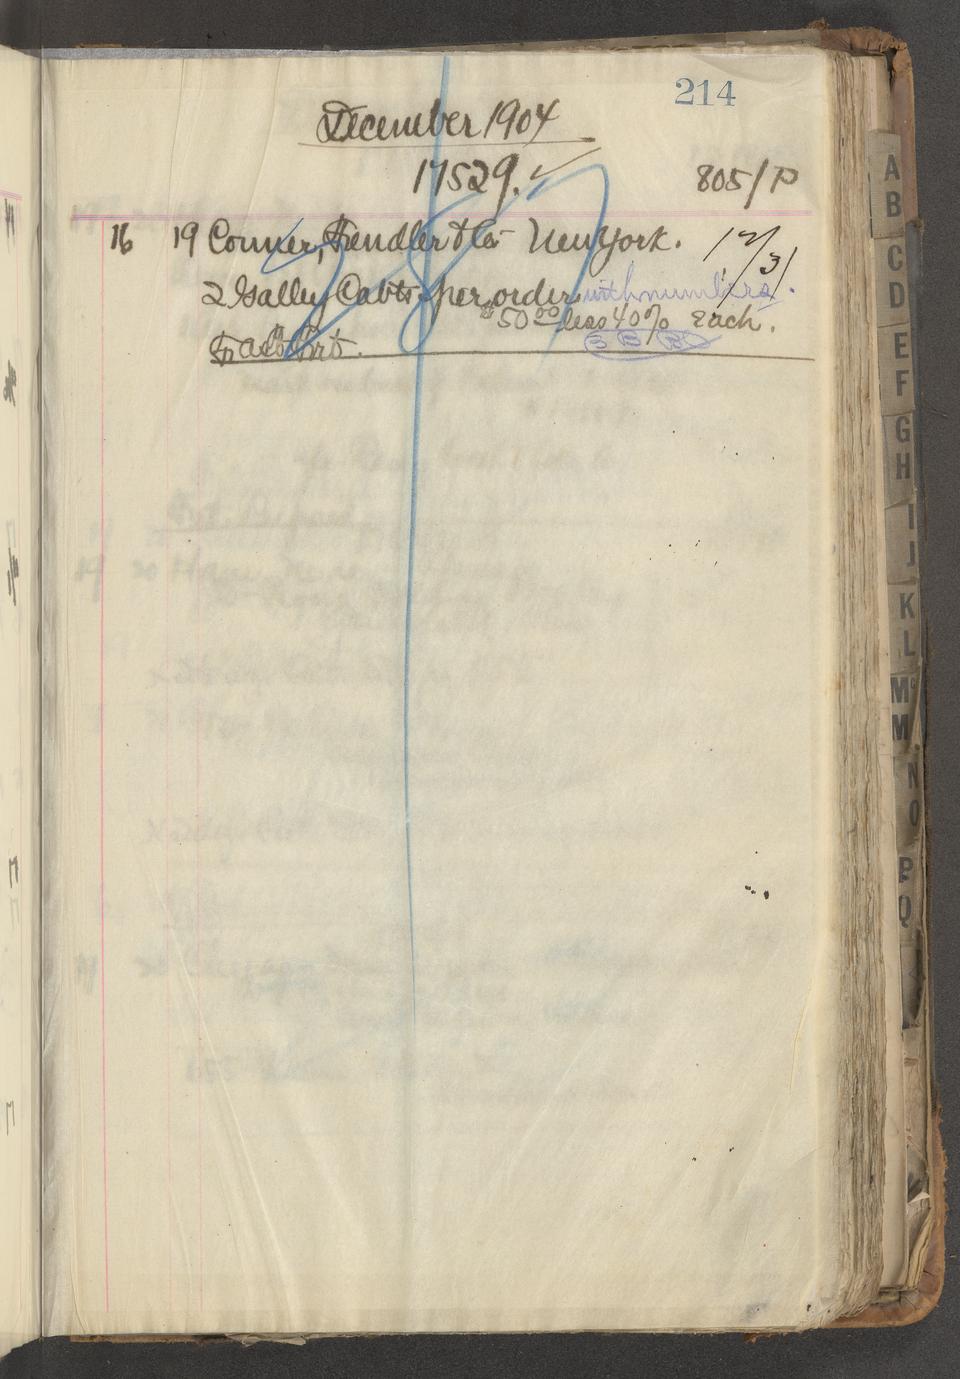 214
December 1904
17529. 805/P
16 19 Conner, Fendler & Co New York. 12/31
2 Galley Cabts per order with numbers.
$50.00 less 40% each.
Fast Frt.
287
A
B
C
D
E
F
G
H
I
J
K
L
Mc
M
N
O
P
Q